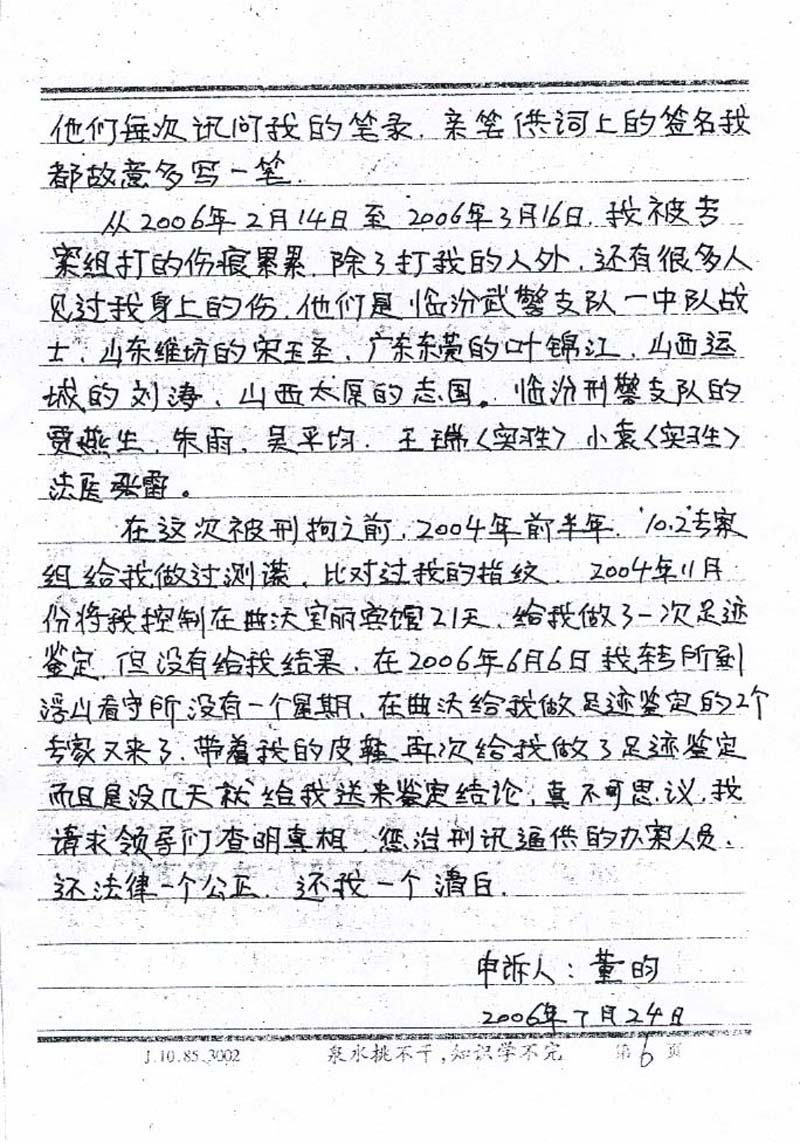 他们每次讯问我的笔录、亲笔供词上的签名我
都故意多写一笔.
从2006年2月14日至2006年3月16日,我被专
案组打的伤痕累累,除了打我的人外,还有很多人
见过我身上的伤,他们是临汾武警支队一中队战
士、山东维坊的宋玉圣、广东东莞的叶锦江、山西运
城的刘涛、山西太原的志国。临汾刑警支队的
贾燕生、朱雨、吴平均、王瑞〈实习生〉小袁〈实习生〉
法医张雷。
在这次被刑拘之前,2004年前半年,"10.2"专案
组给我做过测谎,比对过我的指纹,2004年11月
份将我控制在曲沃宝丽宾馆21天,给我做了一次足迹
鉴定,但没有给我结果,在2006年6月6日我转所到
浮山看守所没有一个星期,在曲沃给我做足迹鉴定的2个
专家又来了,带着我的皮鞋再次给我做了足迹鉴定
而且是没几天就给我送来鉴定结论,真不可思议,我
请求领导们查明真相,惩治刑讯逼供的办案人员、
还法律一个公正,还我一个清白.
申诉人:董昀
2006年7月24日
J.10.85.3002 泉水挑不干,知识学不完 第6页